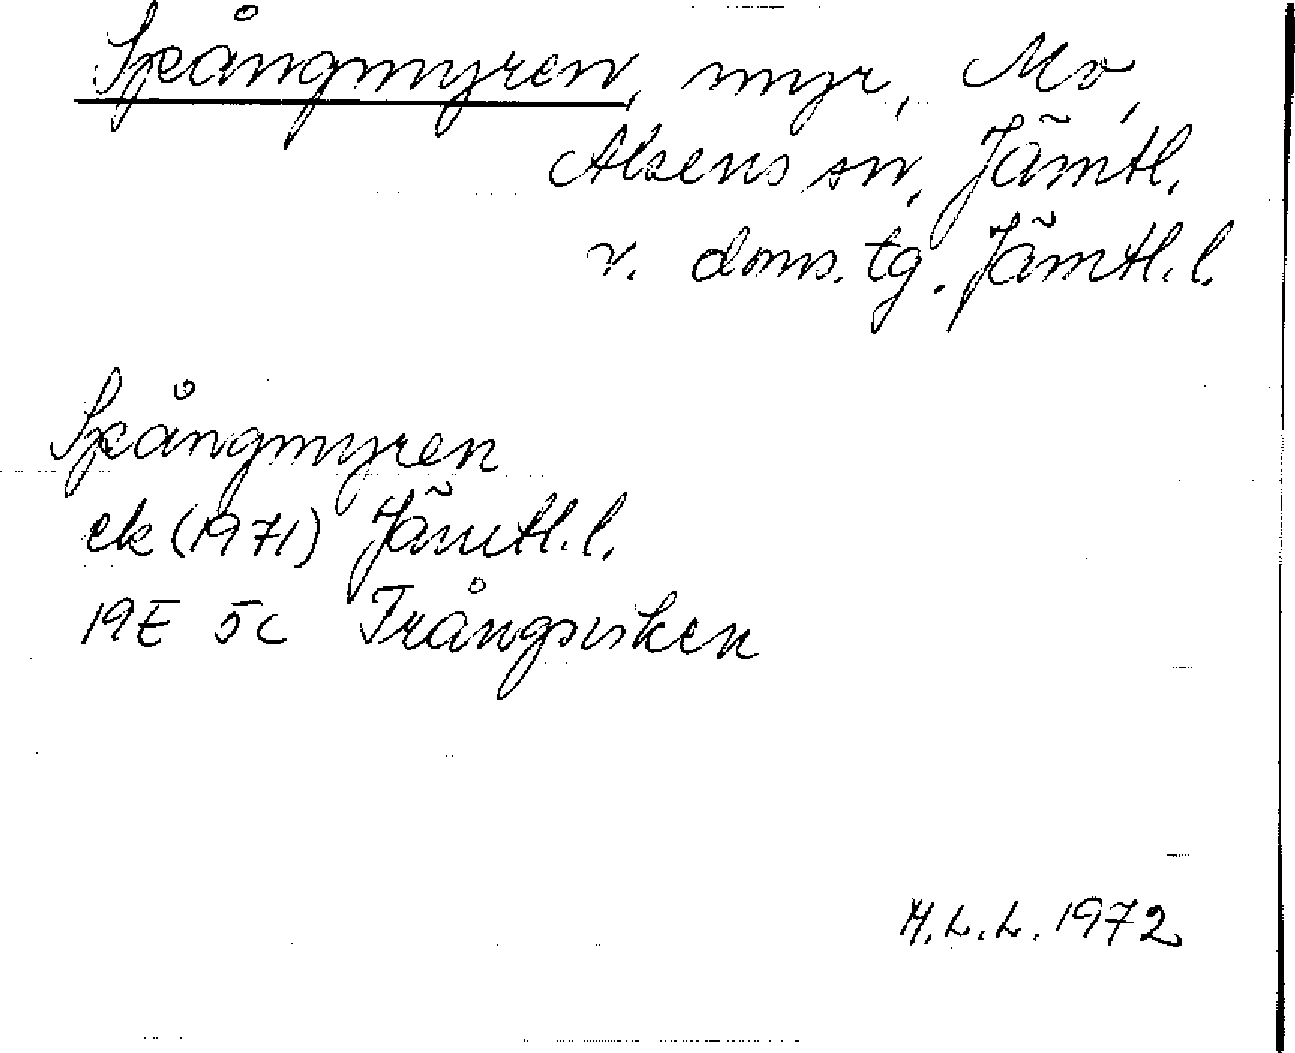 Spångmyren, myr, Mo,
Alsens sn, Jämtl.
v. doms. tg. Jämtl. l.
Spångmyren
ek (1971) Jämtl. l.
19E 5c Trångsviken
M.L.L. 1972